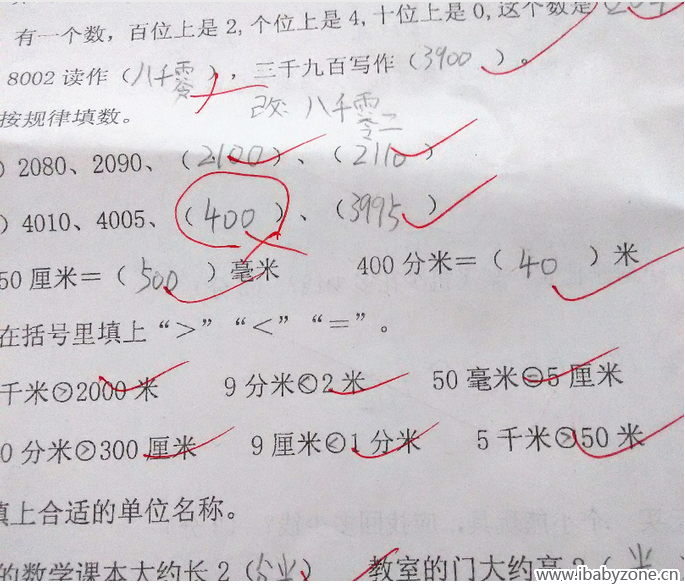 有一个数，百位上是2，个位上是4，十位上是0，这个数是（204
8002读作（八千零），三千九百写作（3900）。
改：八千零二
按规律填数。
）2080、2090、（2100）、（2110）
）4010、4005、（400）、（3995）
50厘米＝（500）毫米 400分米＝（40）米
在括号里填上“＞”“＜”“＝”。
千米＞2000米 9分米＜2米 50毫米＝5厘米
0分米＞300厘米 9厘米＜1分米 5千米＞50米
填上合适的单位名称。
的数学课本大约长2（分米） 教室的门大约高2（米）
www.ibabyzone.cn